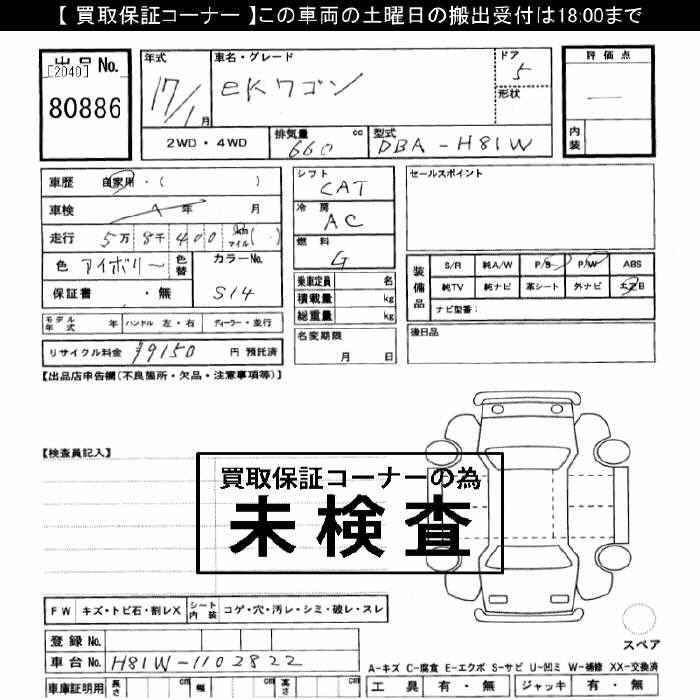 【 買取保証コーナー 】この車両の土曜日の搬出受付は18:00まで
出品 No.
[2040]
80886
年式
17/1月
車名・グレード
eKワゴン
ドア
5
形状
評価点
―
内装
2WD・4WD
排気量 660 cc
型式 DBA-H81W
車歴 自家用・( )
車検 年 月
走行 5万 8千 400 km マイル( )
色 アイボリー 色替 カラーNo. S14
保証書 ・無
モデル年式 年 ハンドル 左・右 ディーラー・並行
リサイクル料金 ¥9150 円 預託済
シフト
CAT
冷房
AC
燃料
G
乗車定員 名
積載量 kg
総重量 kg
名変期限
月 日
セールスポイント
装備品
S/R 純A/W P/S P/W ABS
純TV 純ナビ 革シート 外ナビ エアB
ナビ型番:
後日品
【出品店申告欄(不良箇所・欠品・注意事項等)】
【検査員記入】
買取保証コーナーの為
未検査
FW キズ・トビ石・割レX シート内装 コゲ・穴・汚レ・シミ・破レ・スレ
登録 No.
車台 No. H81W-1102822
車庫証明用 長さ cm 幅 cm 高さ cm
スペア
A-キズ C-腐食 E-エクボ S-サビ U-凹ミ W-補修 XX-交換済
工具 有・無 ジャッキ 有・無